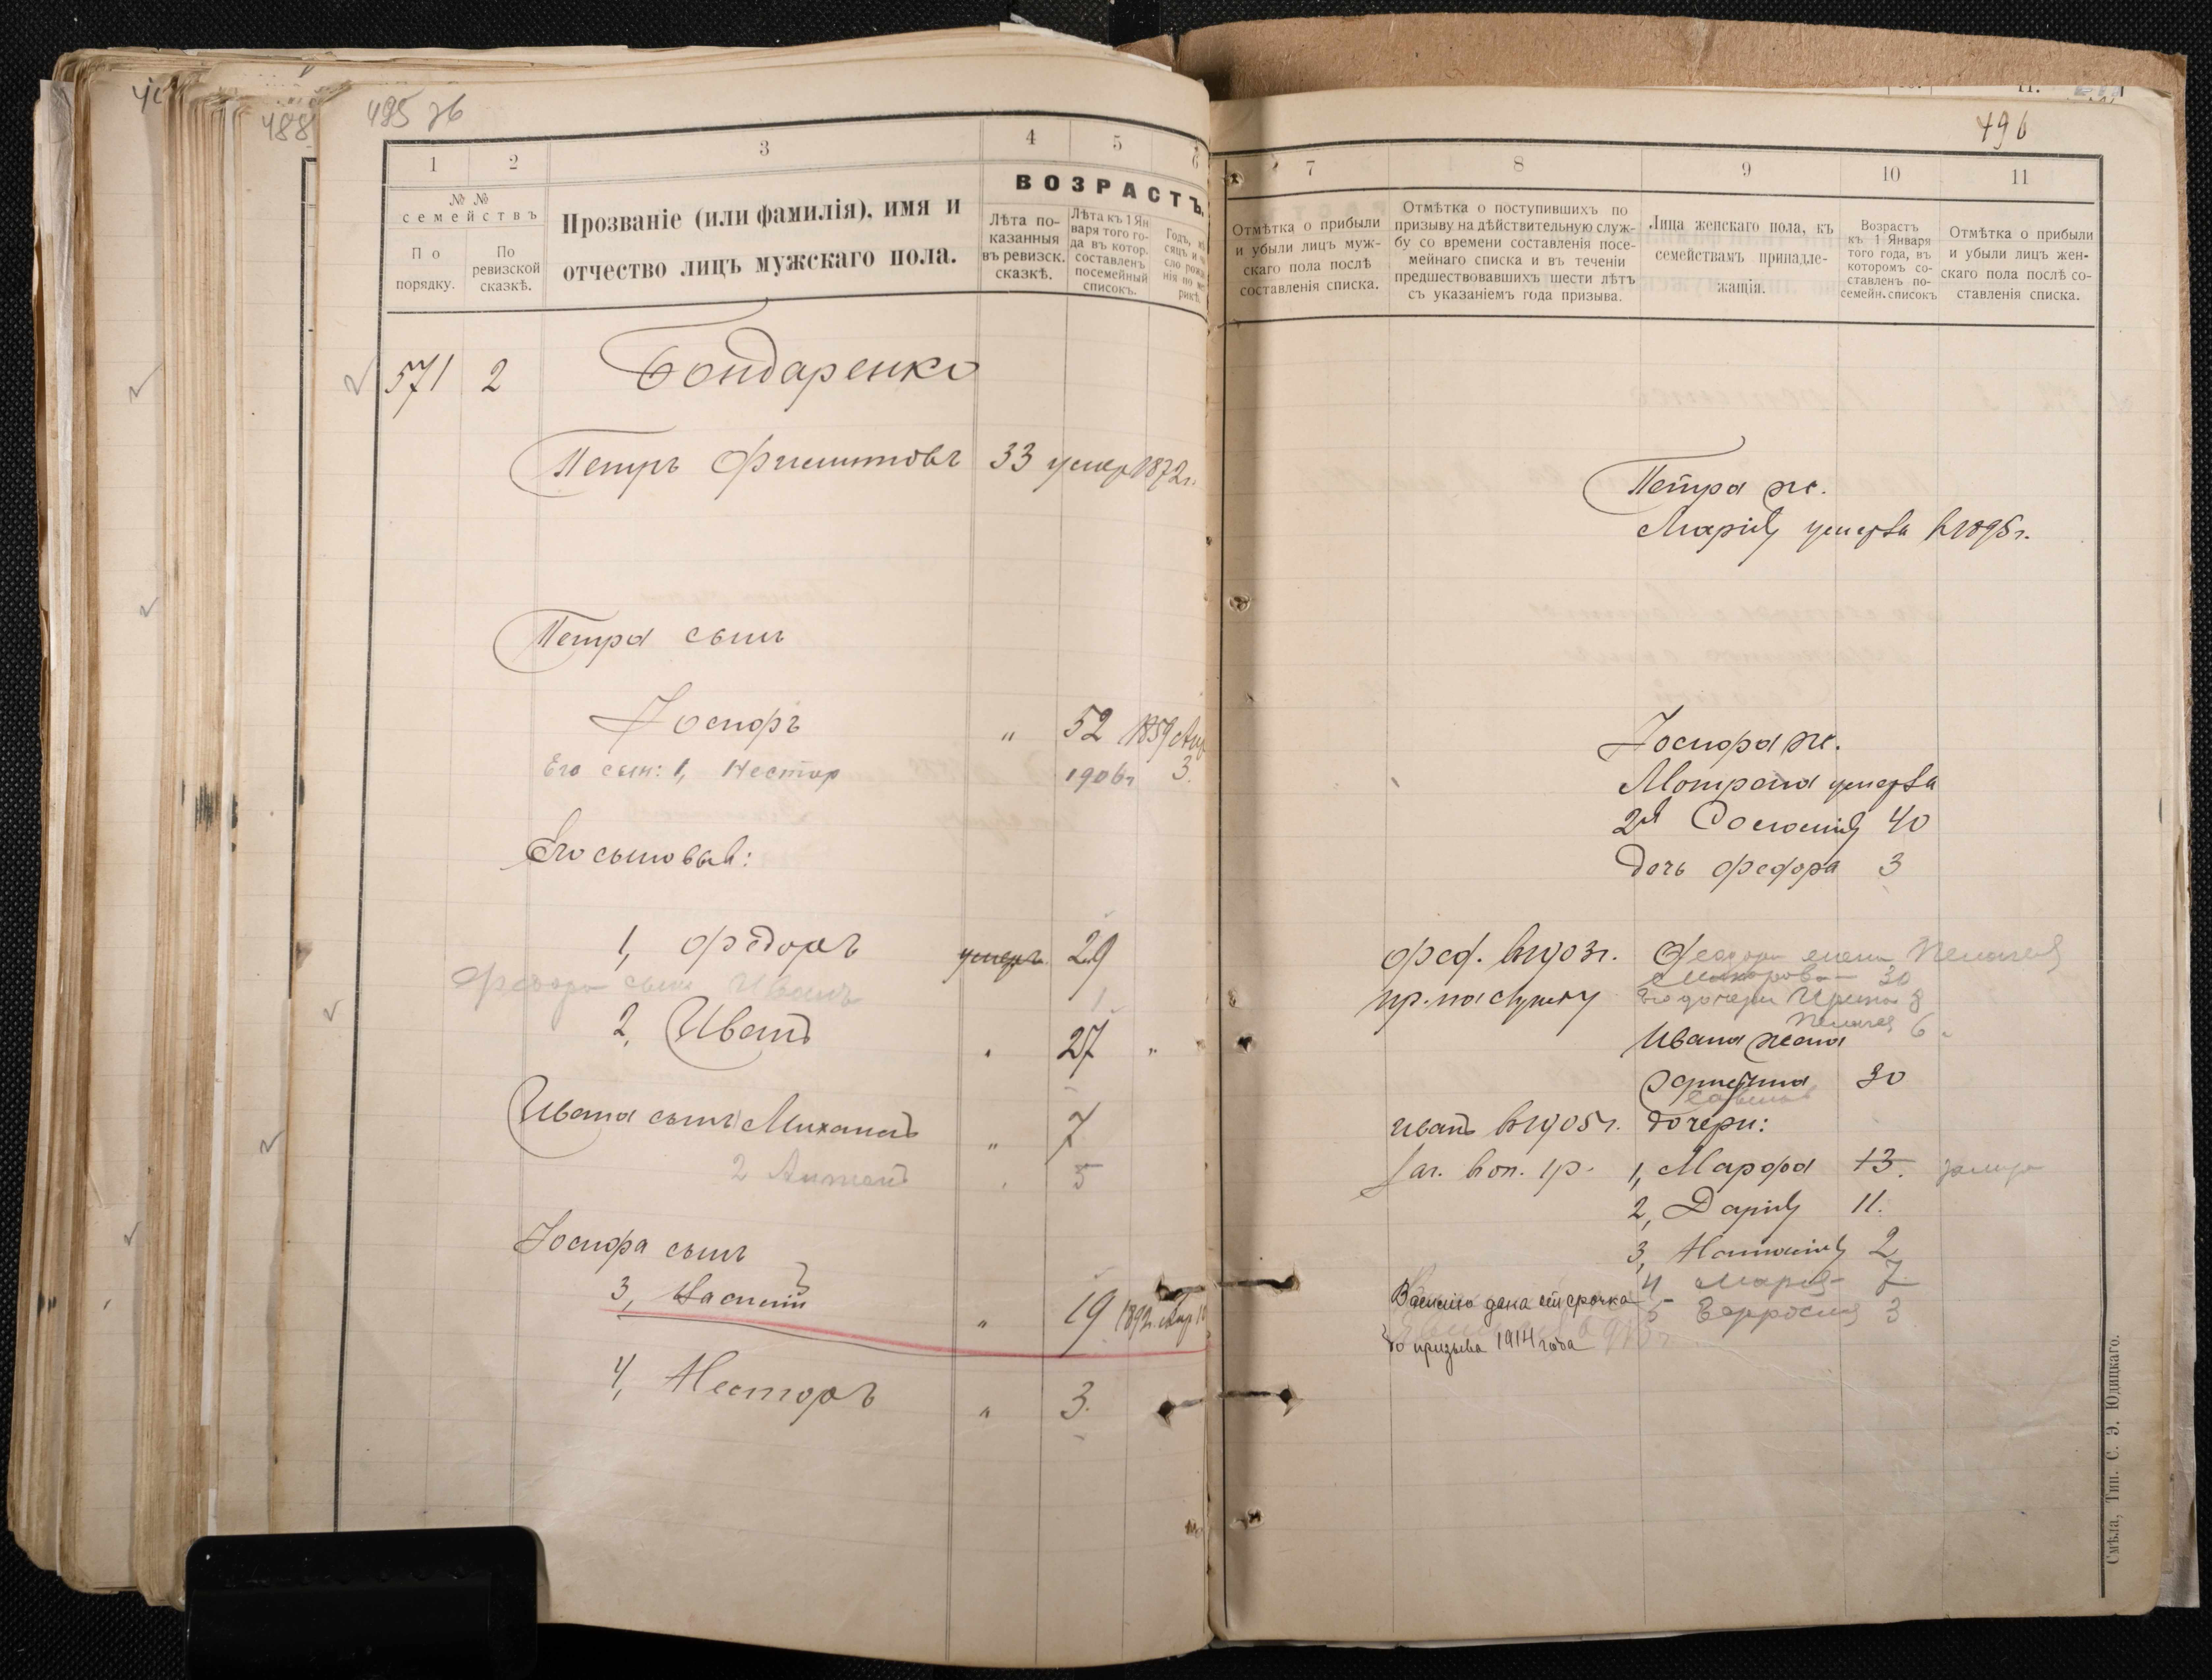 495 зв
488
496
1
2
3
4
5
6
7
8
9
10
11
№ №
семействъ
По
порядку.
По
ревизской
сказкѣ.
Прозваніе (или фамилія), имя и
отчество лицъ мужскаго пола.
ВОЗРАСТЪ.
Лѣта по-
казанныя
въ ревизск.
сказкѣ.
Лѣта къ 1 Ян
варя того го-
да въ котор.
составленъ
посемейный
списокъ.
Отмѣтка о прибыли
и убыли лицъ муж-
скаго пола послѣ
составленія списка.
Отмѣтка о поступившихъ по
призыву на дѣйствительную служ-
бу со времени составленія посе-
мейнаго списка и въ теченіи
предшествовавшихъ шести лѣтъ
съ указаніемъ года призыва.
Лица женскаго пола, къ
семействамъ принадле-
жащія.
Возрастъ
къ 1 Января
того года, въ
которомъ со-
ставленъ по-
семейн. списокъ
Отмѣтка о прибыли
и убыли лицъ жен-
скаго пола послѣ со-
ставленія списка.
571 2 Бондаренко
Петръ 33 умер 1872 г.
Петра ж.
Марія умерла в 1895 г.
Петра сынъ
Іосифъ " 52 1859
Его сын: 1, Нестор 1906 г 3.
Іосифа ж.
Мотрона умерла
2я 40
дочь Федора 3
Его сыновья:
1, Федоръ умеръ 29
Федора сын Иванъ 1
Фед. в 1903 г.
Федора жена Пелагея
30
Его дочери Ирина 8
Пелагея 6
2, Иванъ 27 "
Ивана жена
30
Ивана сынъ Михаилъ " 7
2 Антонъ 5
Иванъ в 1905 г.
дочери:
1, Марфа 13.
2, Дарія 11.
3, 2
4 Марія 7
5 3
Іосифа сынъ
3, Василій " 19 1892 г.
Василію дана отсрочка
до призыва 1914 года
4, Несторъ " 3.
Смѣла, Тип. С. Э. Юдицкаго.